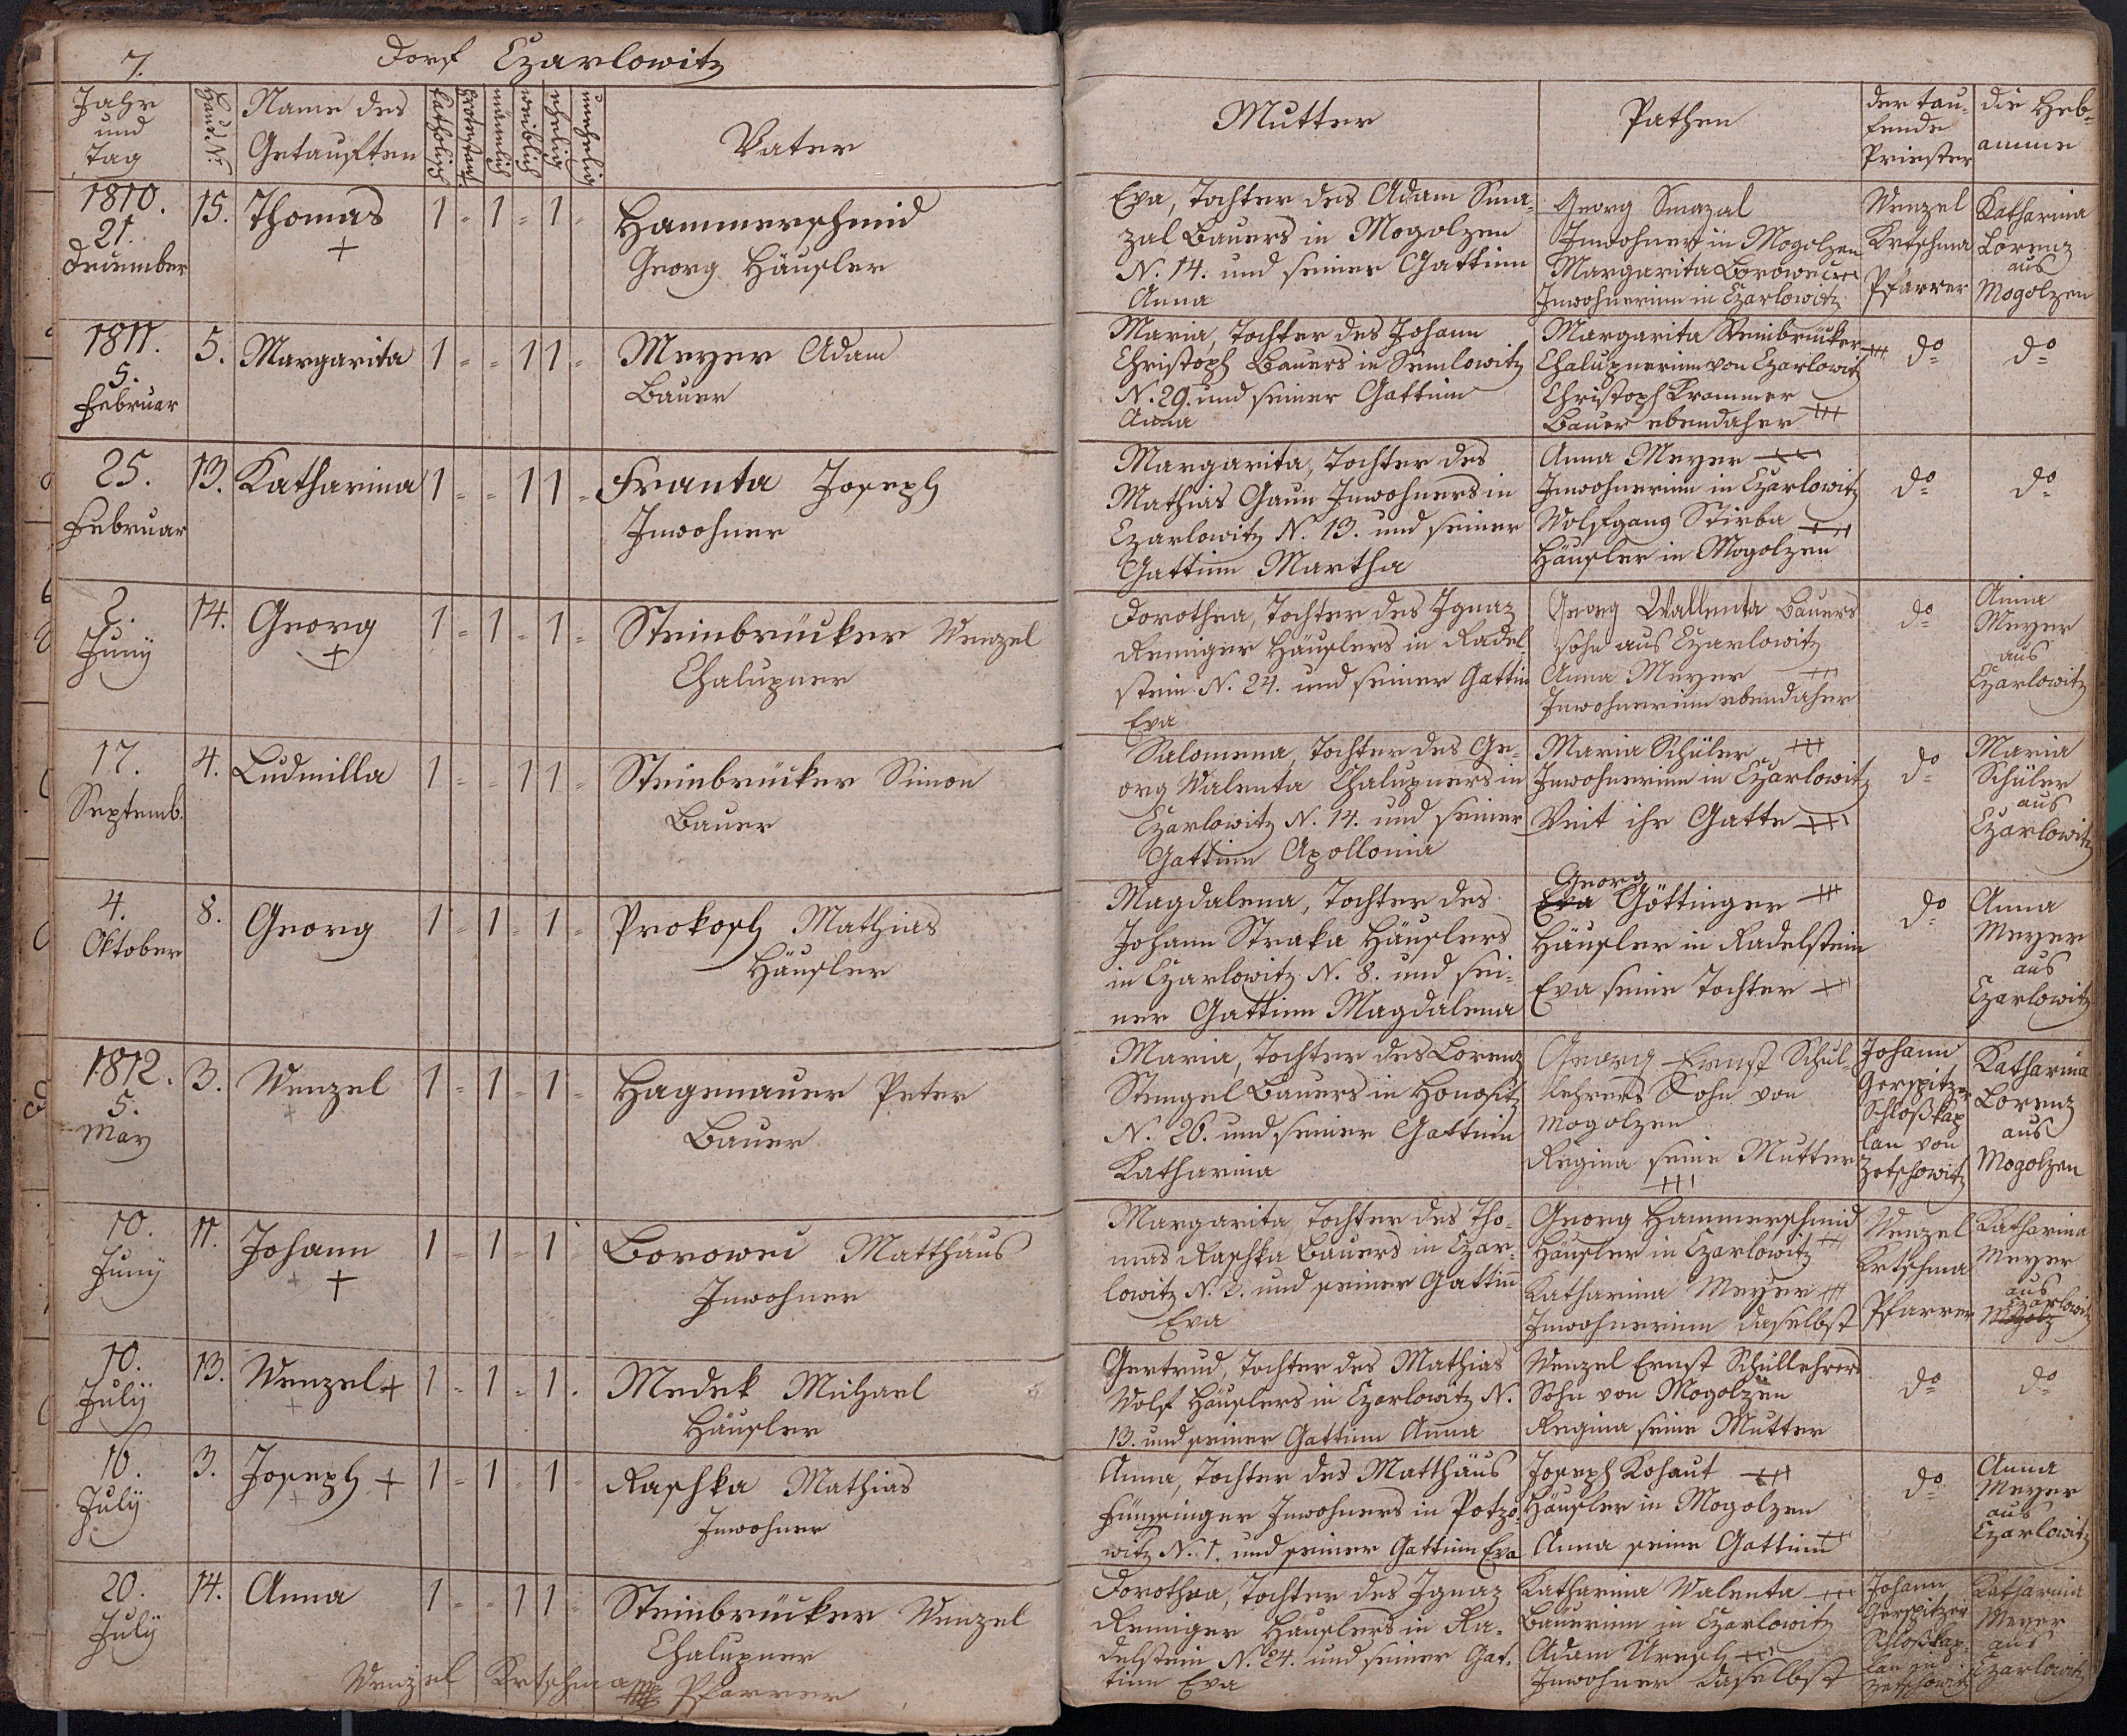 7. Dorf Czarlowitz
Jahr
und
Tag
Haus N:
Name des
Getauften
katholisch
protestant.
männlich
weiblich
ehelig
unehelig
Vater
Mutter
Pathen
der tau-
fende
Priester
die Heb-
amme
1810.
21.
December
15.
Thomas
+
1 - 1 - 1 -
Hammerschmid
Georg Häusler
Eva, Tochter des Adam Sma-
zal Bauers in Mogolzen
N. 14. und seiner Gattinn
Anna
Georg Smazal
Inwohner in Mogolzen
Margarita Borowec +++
Inwohnerinn in Czarlowitz
Wenzel
Krtschma
Pfarrer
Katharina
Lorenz
aus
Mogolzen
1811.
5.
Februar
5.
Margarita
1 - - 1 1 -
Meyer Adam
Bauer
Maria, Tochter des Johann
Christoph Bauers in Semlowitz
N. 29. und seiner Gattinn
Anna
Margarita Steinbrücker +++
Chalupnerinn von Czarlowitz
Christoph Krammer
Bauer ebendaher +++
do
do
25.
Februar
13.
Katharina
1 - - 1 1 -
Franta Joseph
Inwohner
Margarita, Tochter des
Mathias Gaun Inwohners in
Czarlowitz N. 13. und seiner
Gattinn Martha
Anna Meyer +++
Inwohnerinn in Czarlowitz
Wolfgang Stirba +++
Häusler in Mogolzen
do
do
2.
Juny
14.
Georg
+
1 - 1 - 1 -
Steinbrücker Wenzel
Chalupner
Dorothea, Tochter des Ignaz
Reniger Häuslers in Radel-
stein N. 24. und seiner Gattin
Eva
Georg Wallenta Bauers
sohn aus Czarlowitz
Anna Meyer +++
Inwohnerinn ebendaher
do
Anna
Meyer
aus
Czarlowitz
17.
Septemb.
4.
Ludmilla
1 - - 1 1 -
Steinbrücker Simon
Bauer
Salomena, Tochter des Ge-
org Walenta Chalupners in
Czarlowitz N. 14. und seiner
Gattinn Apollonia
Maria Schüler +++
Inwohnerinn in Czarlowitz
Veit ihr Gatte +++
do
Maria
Schüler
aus
Czarlowitz
4.
Oktober
8.
Georg
1 - 1 - 1 -
Prokosch Mathias
Häusler
Magdalena, Tochter des
Johann Straka Häuslers
in Czarlowitz N. 8. und sei-
ner Gattinn Magdalena
Georg
Eva Göttinger +++
Häusler in Radelstein
Eva seine Tochter +++
do
Anna
Meyer
aus
Czarlowitz
1812.
5.
May
3.
Wenzel
+
1 - 1 - 1 -
Hagenauer Peter
Bauer
Maria, Tochter des Lorenz
Stengel Bauers in Honositz
N. 26. und seiner Gattinn
Katharina
Georg Ernst Schul-
lehrers Sohn von
Mogolzen
Regina seine Mutter
+++
Johann
Gerspitzer
Schloßkap
lan von
Zetschowitz
Katharina
Lorenz
aus
Mogolzen
10.
Juny
11.
Johann
+ +
1 - 1 - 1 -
Borowec Matthäus
Inwohner
Margarita, Tochter des Tho-
mas Raschka Bauers in Czar-
lowitz N. 2. und seiner Gattin
Eva
Georg Hammerschmid
Häusler in Czarlowitz +++
Katharina Meyer +++
Inwohnerinn daselbst
Wenzel
Krtschma
Pfarrer
Katharina
Meyer
aus
Czarlowitz
Mogolz
10.
July
13.
Wenzel +
+
1 - 1 - 1 .
Medek Michael
Häusler
Gertrud, Tochter des Mathias
Wolf Häuslers in Czarlowitz N.
13. und seiner Gattinn Anna
Wenzel Ernst Schullehrers
Sohn von Mogolzen
Regina seine Mutter
do
do
16.
July
3.
Joseph +
+
1 - 1 - 1 -
Raschka Mathias
Inwohner
Anna, Tochter des Matthäus
Inwohners in Potzo-
witz N. 1. und seiner Gattinn Eva
Joseph Kohaut +++
Häusler in Mogolzen
Anna seine Gattinn +++
do
Anna
Meyer
aus
Czarlowitz
20.
July
14.
Anna
1 - - 1 1 -
Steinbrücker Wenzel
Chalupner
Dorothea, Tochter des Ignaz
Reniger Häuslers in Ra-
delstein N. 24. und seiner Gat-
tinn Eva
Katharina Walenta +++
Bäuerinn in Czarlowitz
Adam Uresch +++
Inwohner daselbst
Johann
Gerspitzer
Schloßkap-
lan zu
Zetschowitz
Katharina
Meyer
aus
Czarlowitz
Wenzel Krtschma Pfarrer